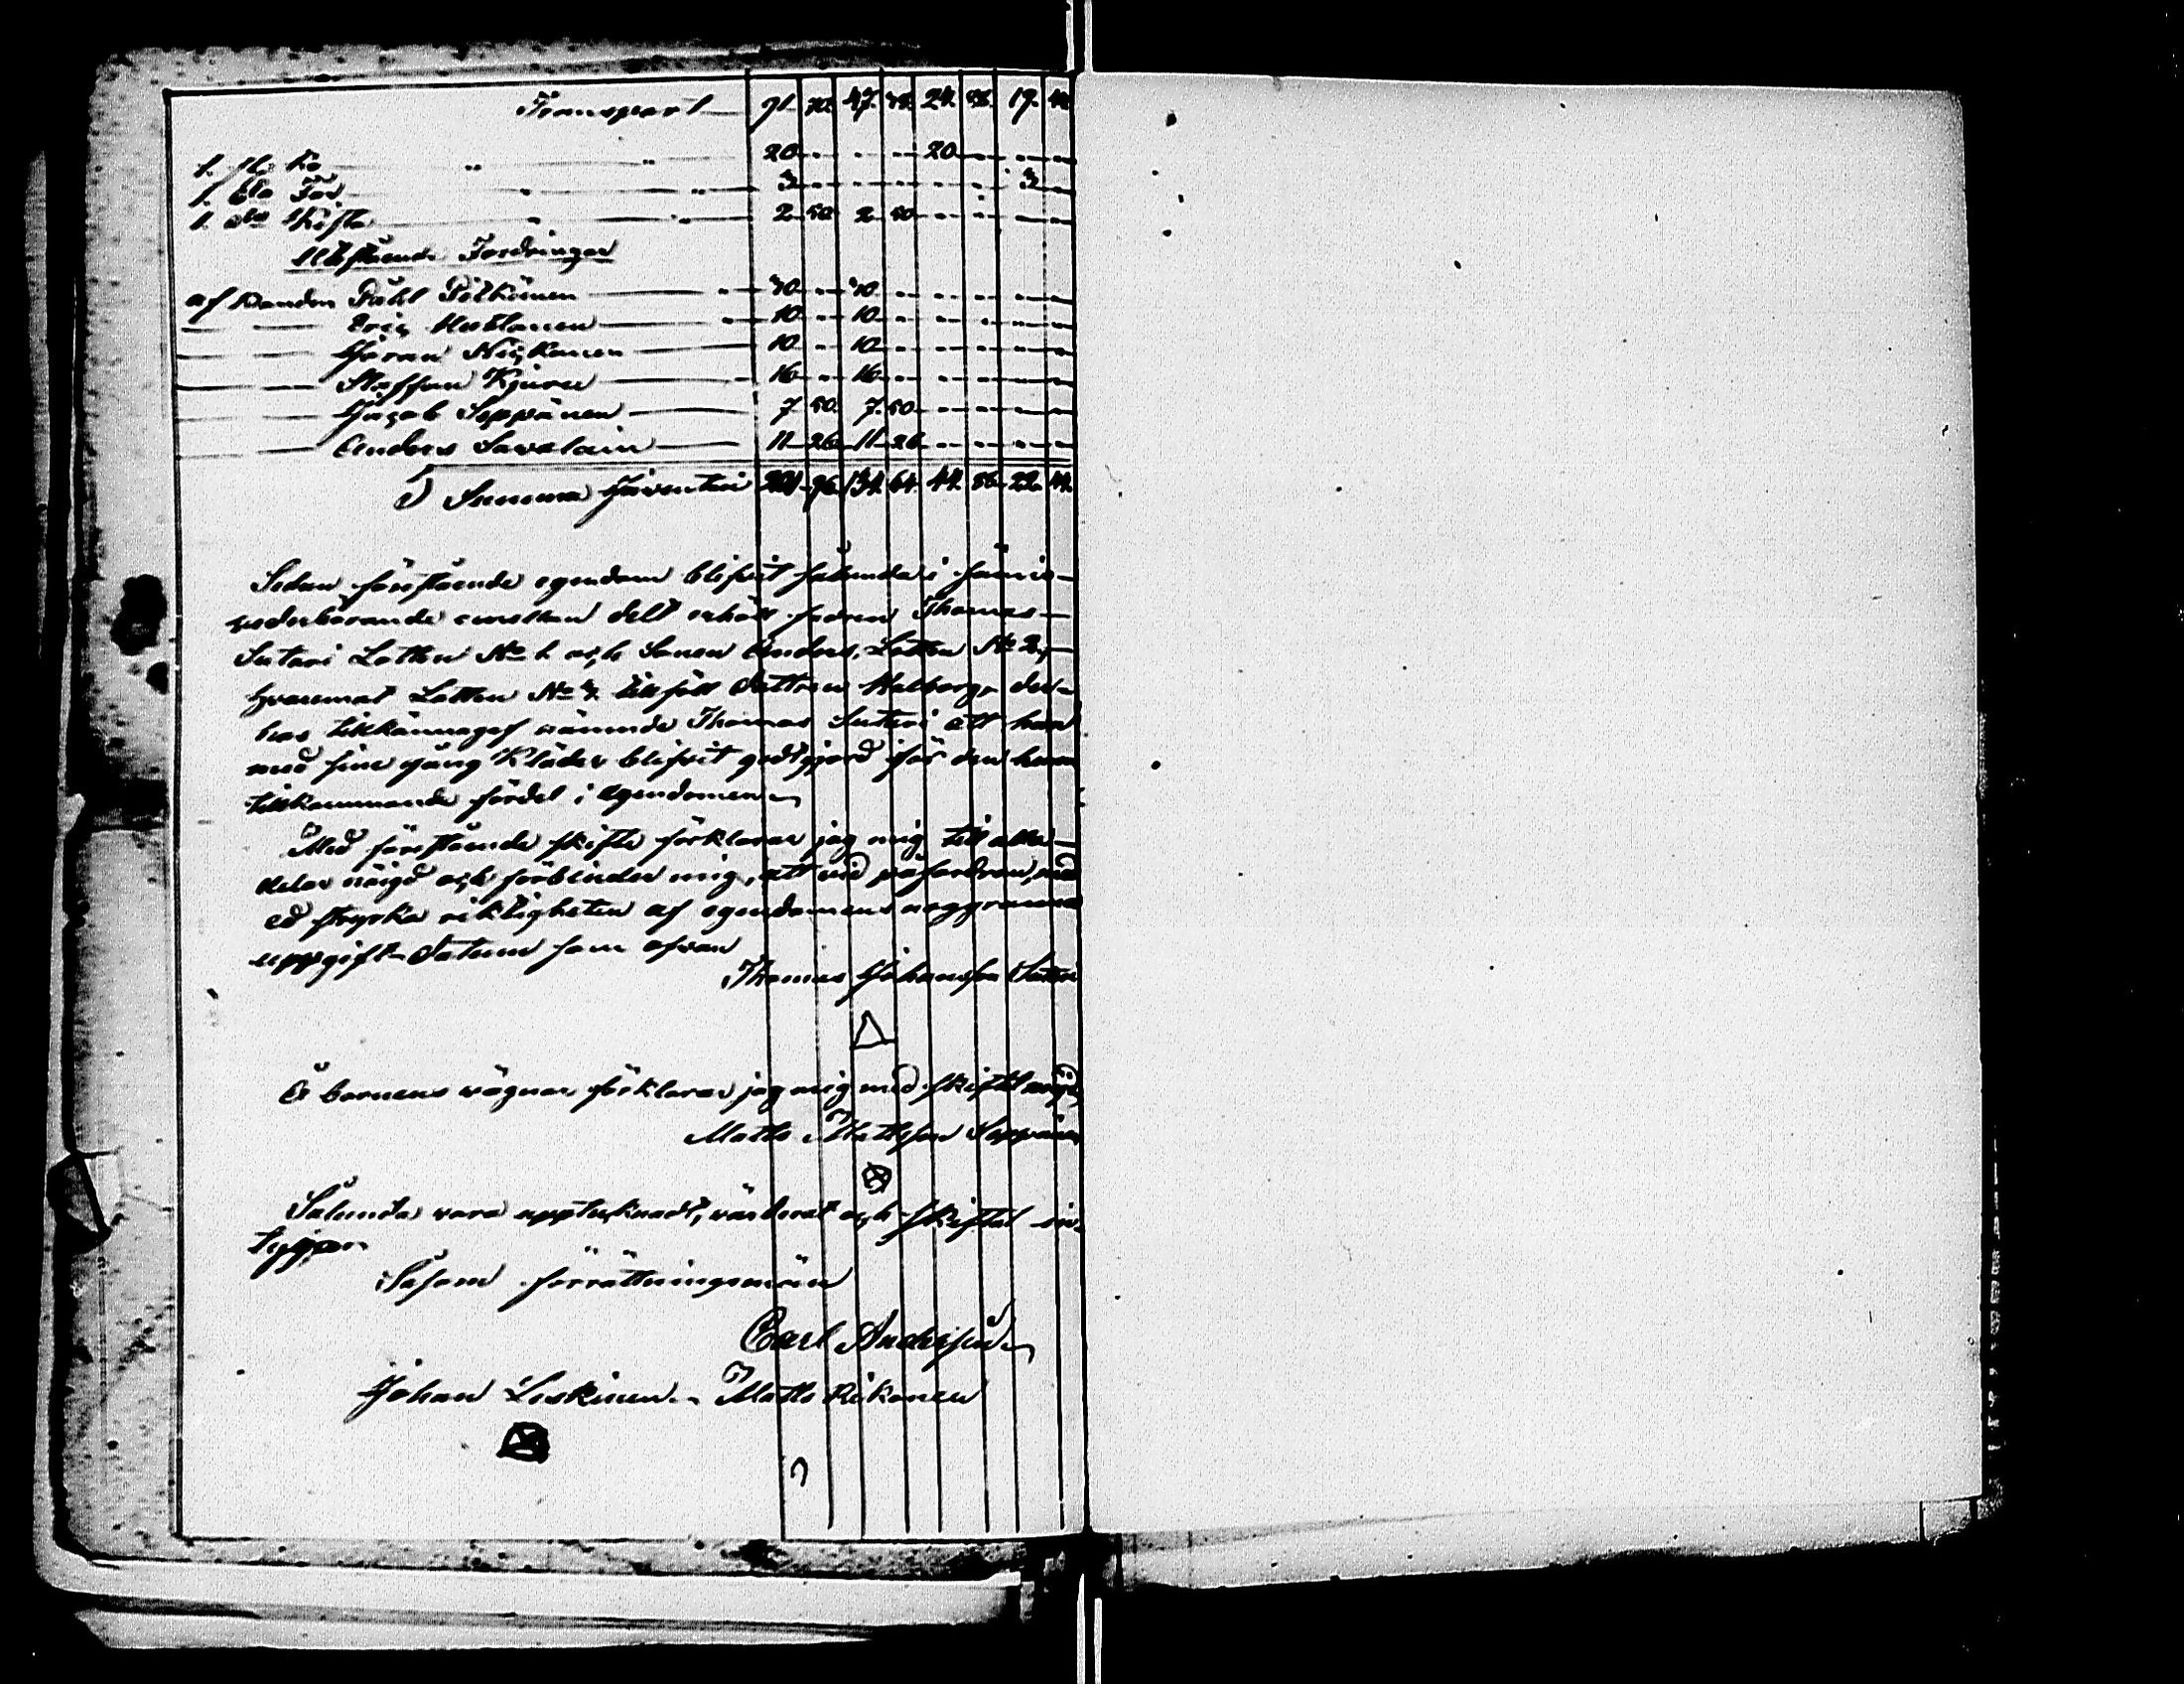 Transport 91. 70. 47. 38. 24. 88. 19. 44
1. st. Ko " " 20 - - - 20 - - -
1. dto Får " " 3 - - - - - 3 -
1. dto Kista " " 2 50 2 50 - - - -
Utstående Fordringar
af Bonden Påhl Pitkänen 40 - 40 - - - - -
Eric Mustonen 10 - 10 - - - - -
Göran Nickanen 10 - 10 - - - - -
Staffan Kjuru 16 - 16 - - - - -
Jacob Seppänen 7 50 7. 50 - - - -
Anders Savolain 11 26 11 26 - - - -
Summa Inventari 201 96. 134. 64 44. 88 22. 44.
Sedan förestående egendom blifvit sålunda i
vederbörande emellan delt erhöll fadren Thomas
Suteri Lotten No 1 och Sonen Anders, Lotten No 2,
hvaremot Lotten No 3. tillföll Dottren Walborg, der-
hos tillkännagaf nämnde Thomas Suteri att han
med sine gång Kläder blifvit godtgjord för den honom
tillkommande fördel i Egendomen
Med förestående skifte förklarar jag mig till alla
delar nöigd och förbinder mig, att vid påfordran, med
ed styrka riktigheten af egendomens noggranna
uppgift Datum som ofvan
Thomas Johansson Suteri
Å barnens vägnar förklarar jag mig med skiftet nöigd
Matts Mattsson Seppänen
Sålunda vara upptecknadt, värderat och skiftat in-
tygar
Såsom förrättningsmän
Carl
Johan Leskinen Matts